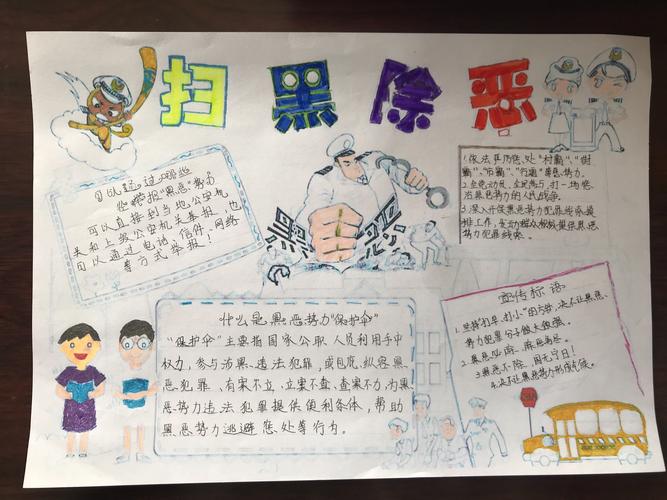 扫黑除恶
可以通过哪些
举报"黑恶"势力
可以直接到当地公安机
关和上级公安机关举报,也
可以通过电话、信件、网络
等方式举报!
黑恶
1.依法严厉惩处"村霸"、"街
霸"、"市霸"、"行霸"等恶势力。
2.全党动员、全民参与,打一场扫
治黑恶势力的人民战争。
3.深入开展黑恶势力犯罪线索摸
排工作,发动群众积极提供黑恶
势力犯罪线索。
什么是黑恶势力"保护伞"
"保护伞"主要指国家公职人员利用手中
权力,参与涉黑违法犯罪,或包庇、纵容黑
恶犯罪、有案不立、立案不查、查案不力,为黑
恶势力违法犯罪提供便利条件,帮助
黑恶势力逃避惩处等行为。
宣传标语
1.坚持"打早、打小"的方针,决不让黑恶
势力犯罪分子做大做强。
2.黑恶必除,除恶务尽。
3.黑恶不除,国无宁日!
4.决不让黑恶势力形成气候。